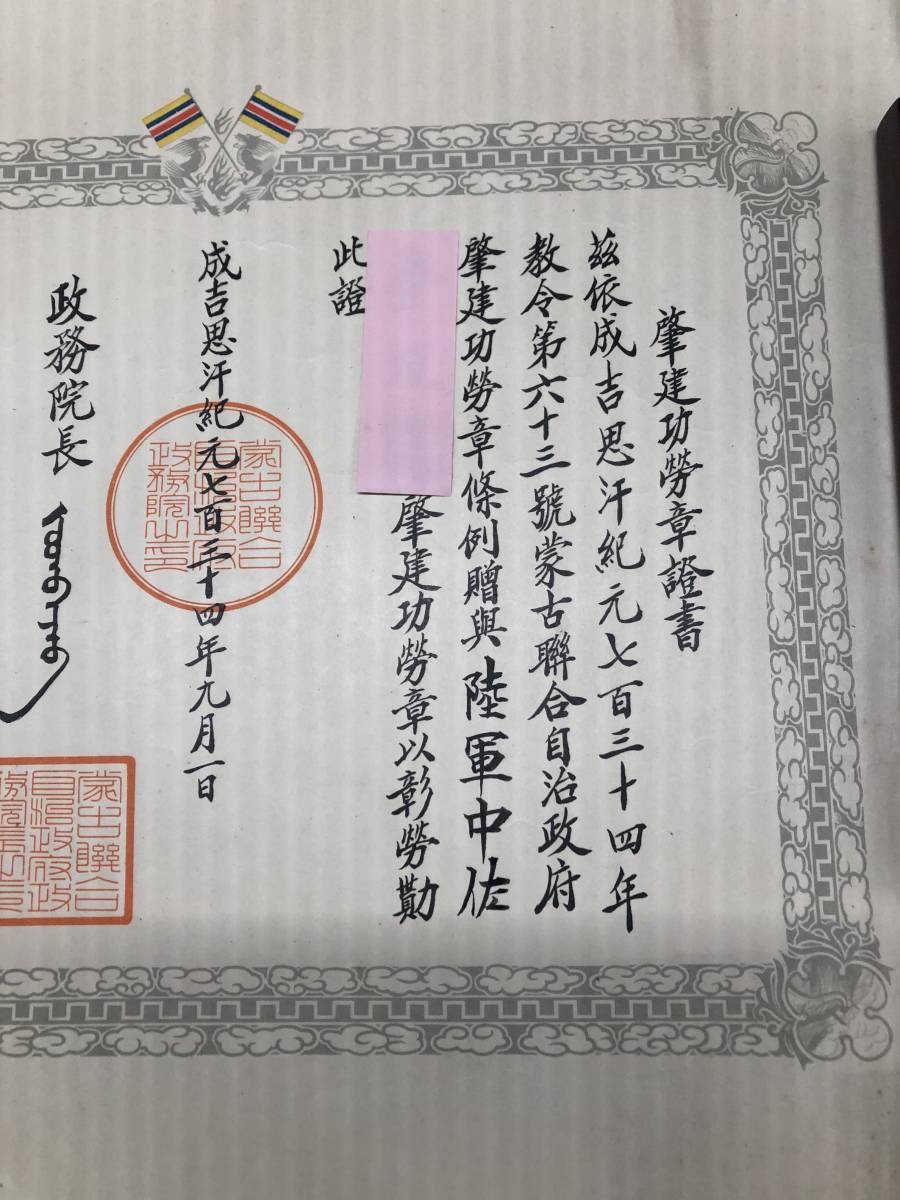 肇建功勞章證書
茲依成吉思汗紀元七百三十四年
教令第六十三號蒙古聯合自治政府
肇建功勞章條例贈與陸軍中佐
肇建功勞章以彰勞勩
此證
成吉思汗紀元七百三十四年九月一日
蒙古聯合
自治政府
政務院之印
政務院長
蒙古聯合
自治政府政
務院長之印